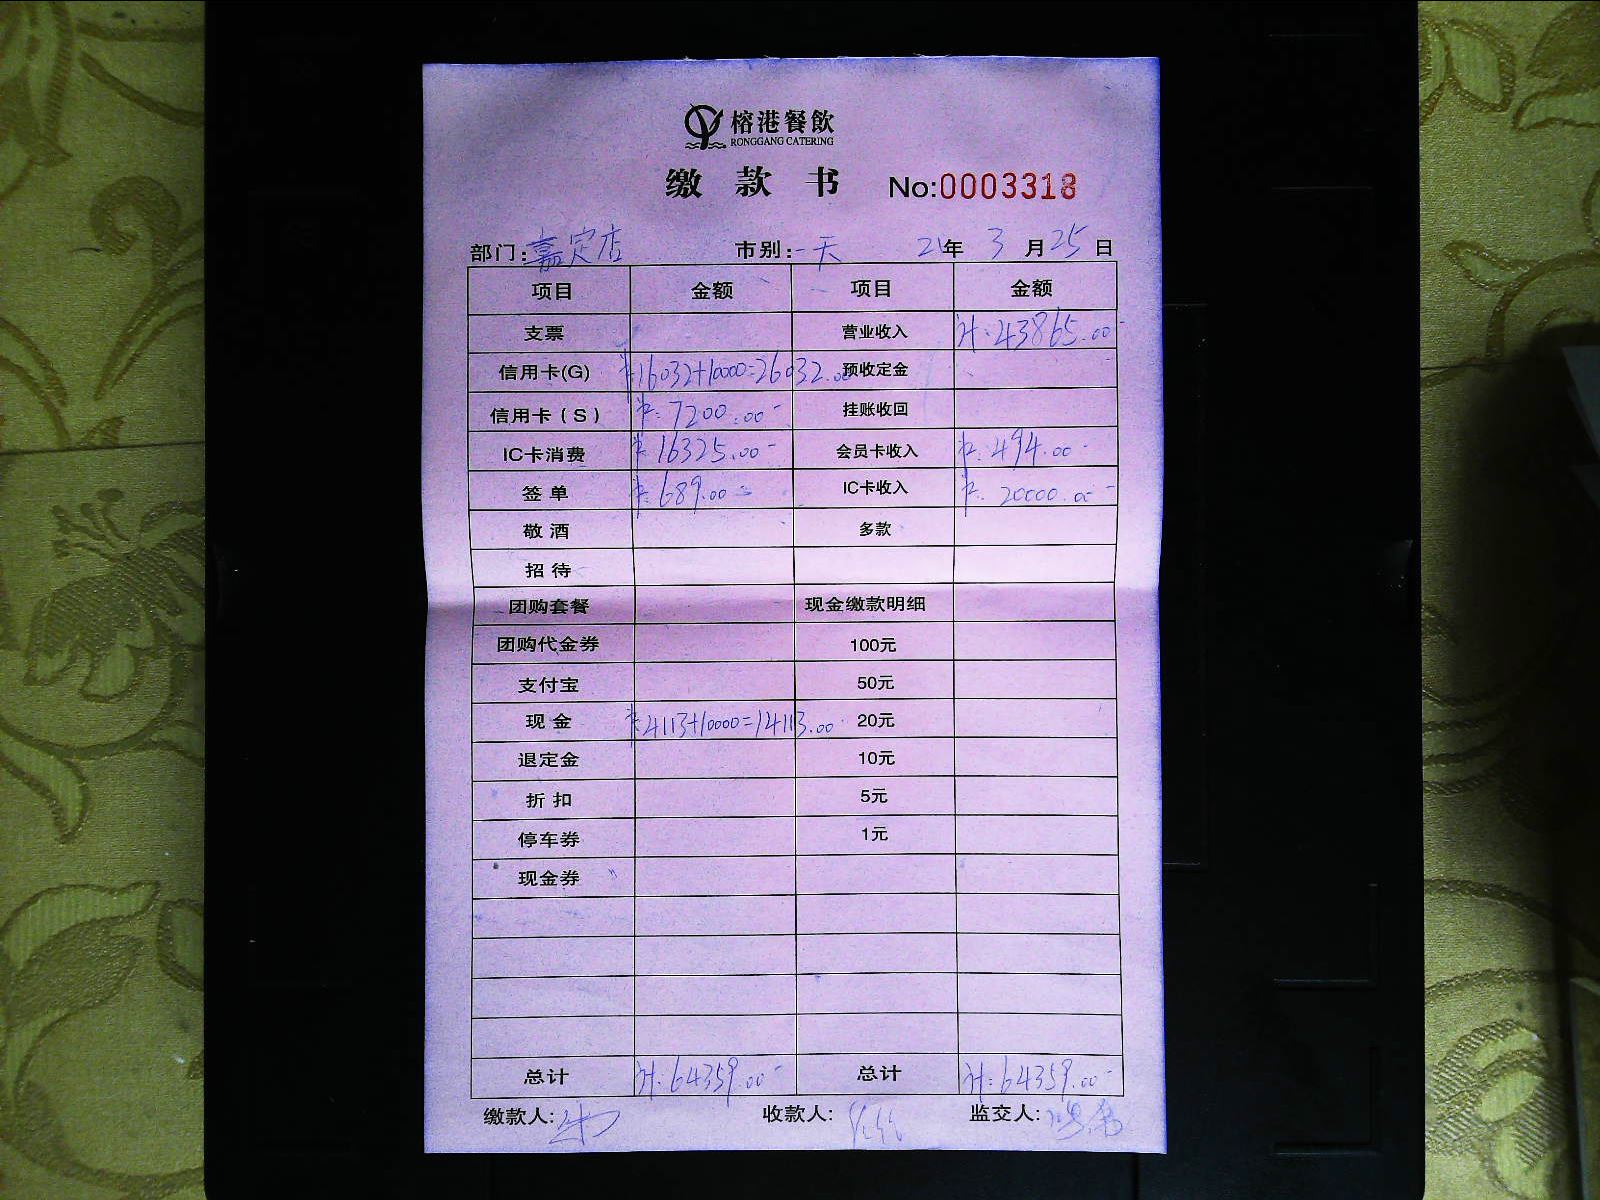 榕港餐飲
RONGGANG CATERING
缴款书 No:0003318
部门:嘉定店 市别:一天 21年 3 月 25 日
项目 金额 项目 金额
支票 营业收入 计:43865.00
信用卡(G) 卡:16032+10000=26032.00 预收定金
信用卡(S) 卡:7200.00 挂账收回
IC卡消费 卡:16325.00 会员卡收入 卡:494.00
签单 卡:689.00 IC卡收入 卡:20000.00
敬酒 多款
招待
团购套餐 现金缴款明细
团购代金券 100元
支付宝 50元
现金 卡:4113+10000=14113.00 20元
退定金 10元
折扣 5元
停车券 1元
现金券
总计 计:64359.00 总计 计:64359.00
缴款人: 收款人: 监交人: